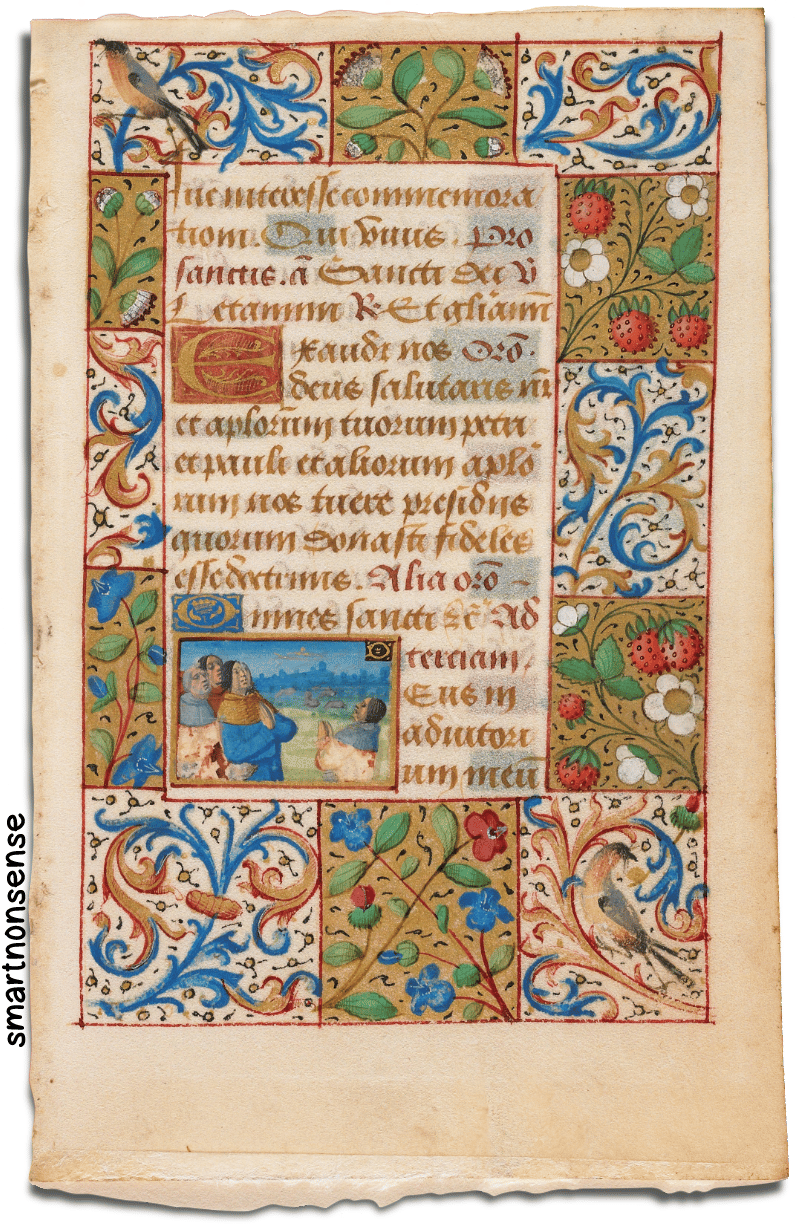 fue interesse commemora
tioni. Qui viuis. Pro
sanctis. ā Sancti dei V̄
Letamini R. Et gl̄iamī
Exaudi nos Orō.
deus salutaris nr̄
et aplorūm tuorum petri
et pauli et aliorum aplō
rum nos tuere presidiis
quorum donasti fideles
esse doctrinis. Alia orō
Omnes sancti zc̄ Ad
terciam.
Eus in
adiutori
um meū
smartnonsense